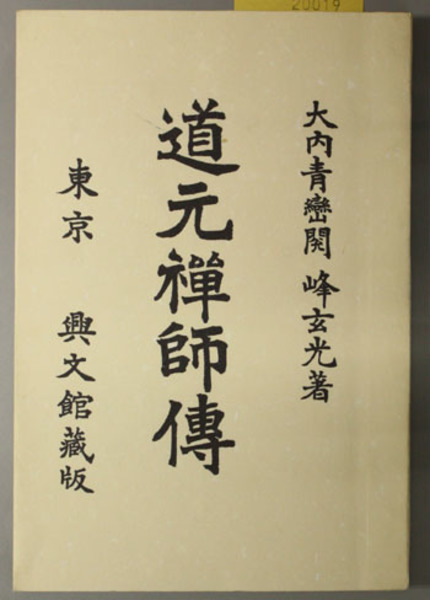 20019
大内青巒閲 峰玄光著
道元禅師傳
東京 興文館藏版